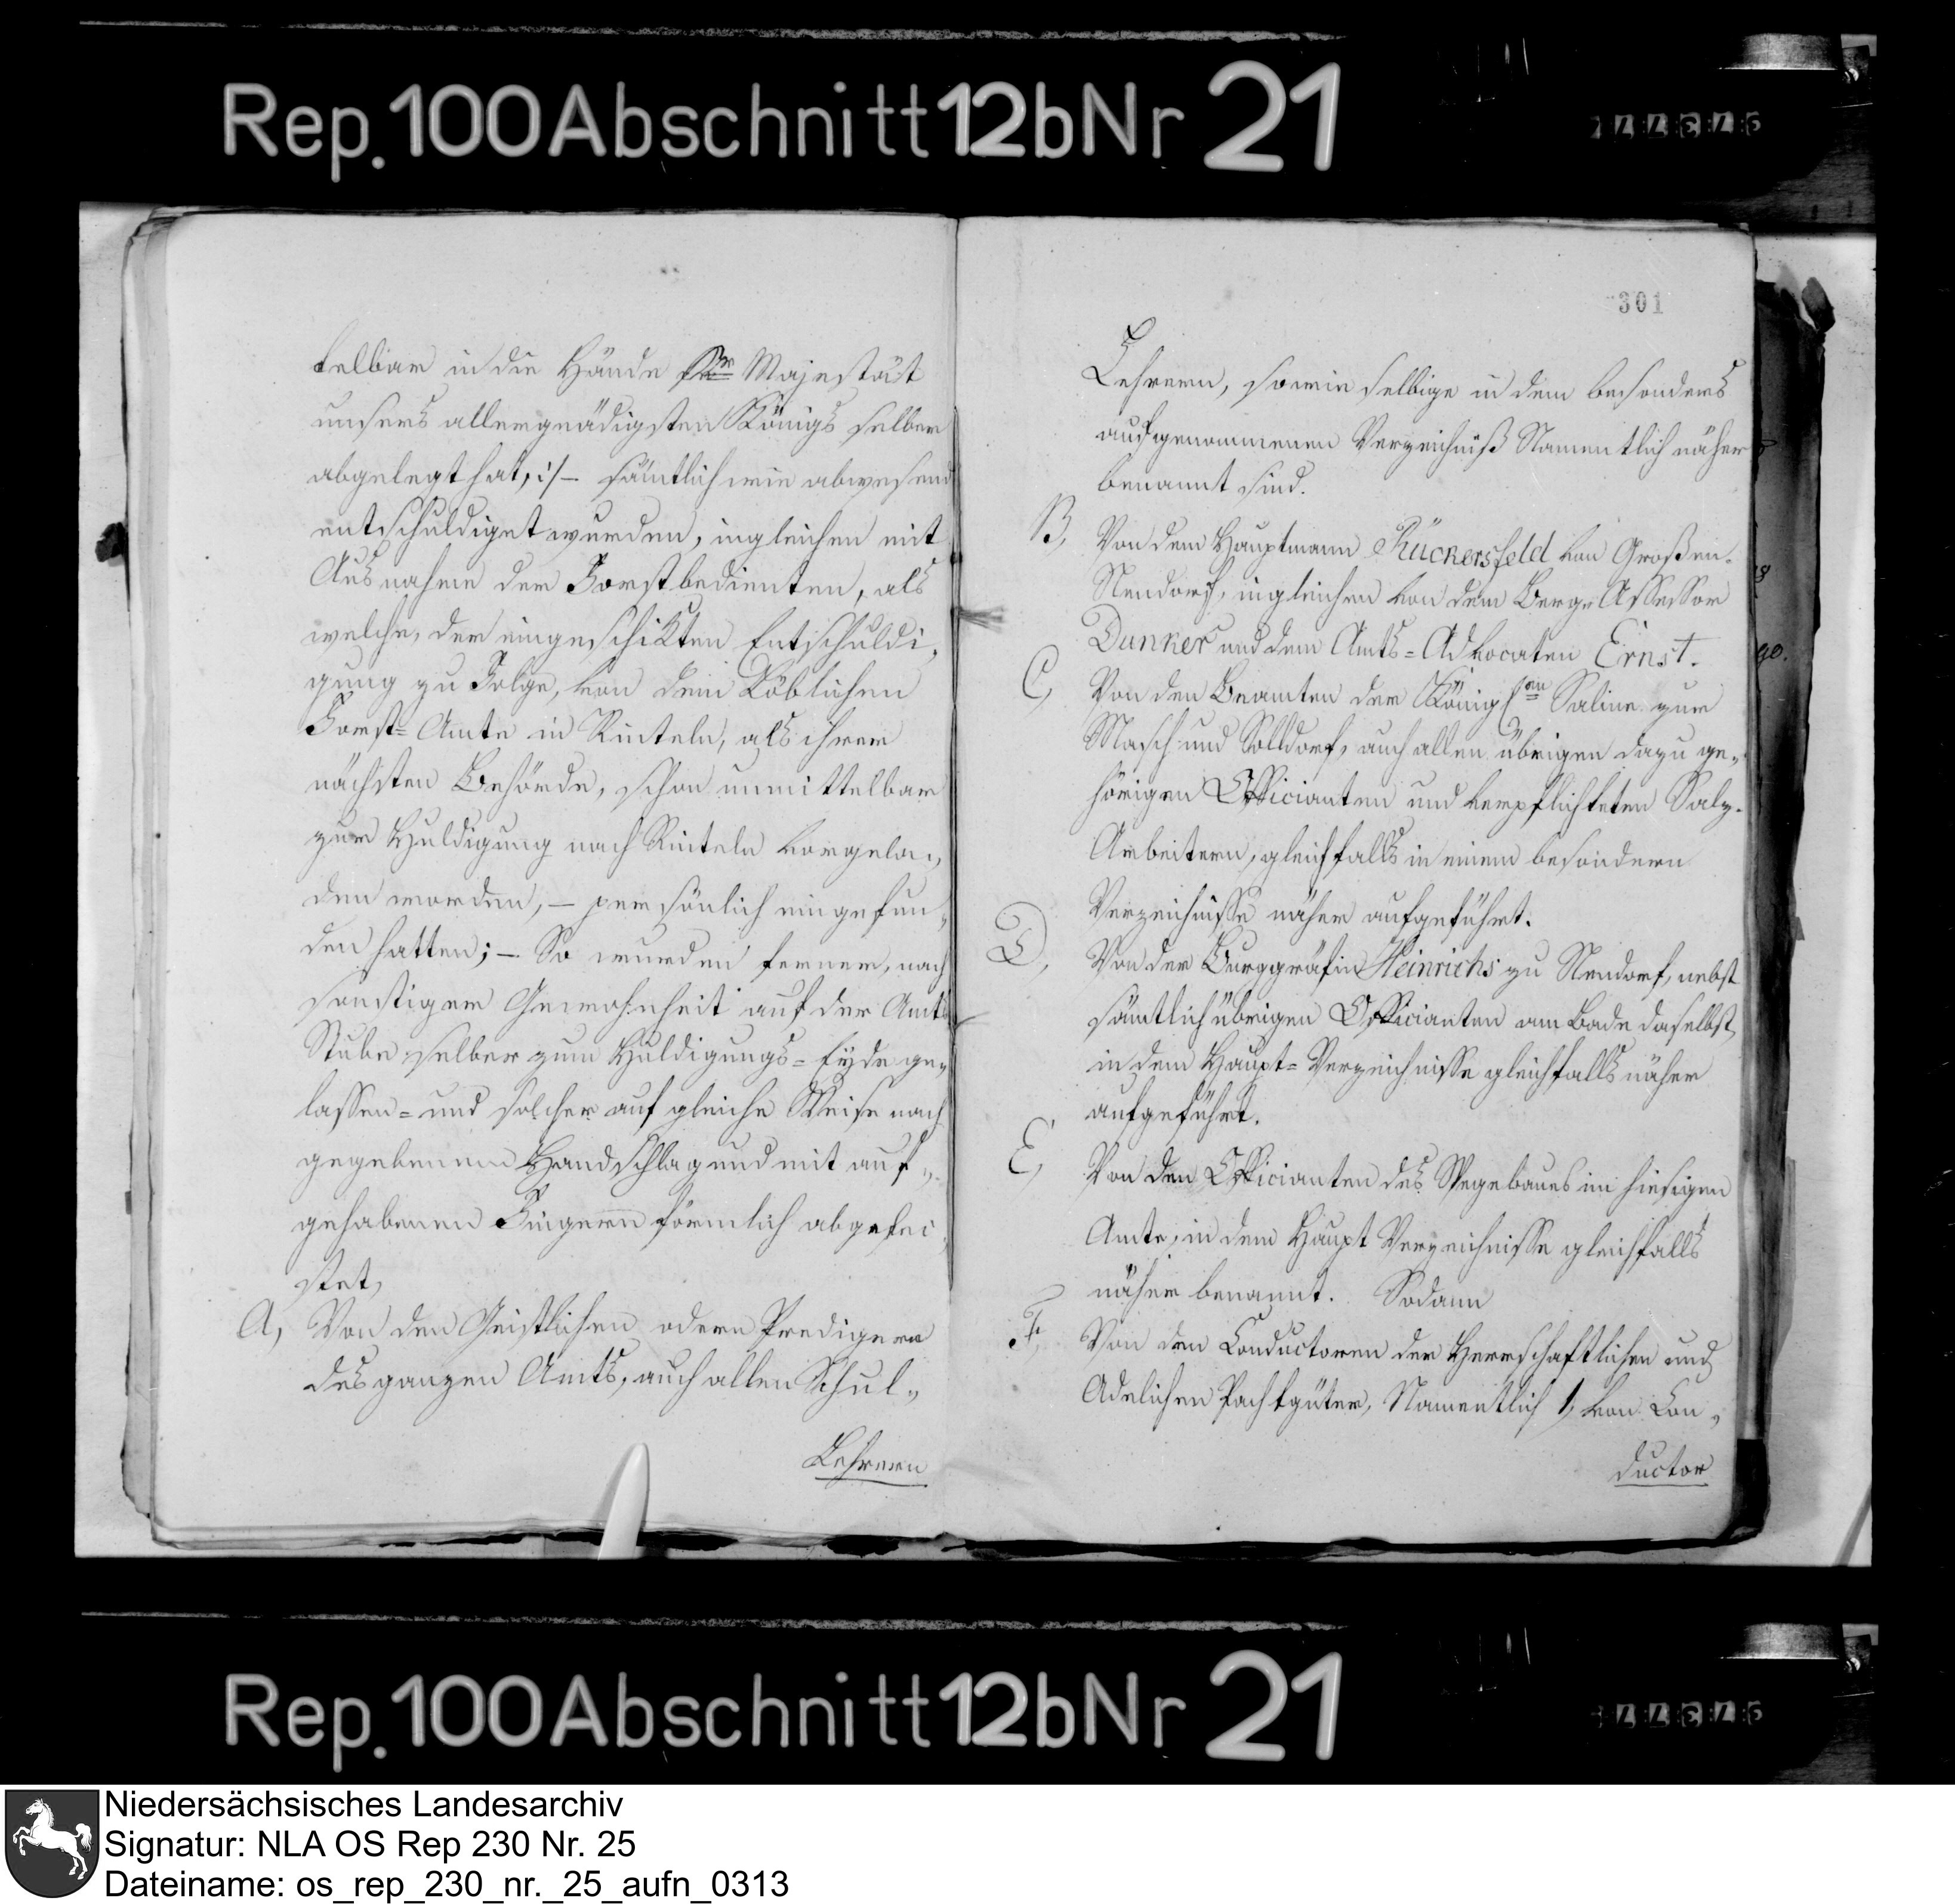 Rep. 100 Abschnitt 12b Nr 21
telbar in die Hände Sr Majestät
unsers allergnädigsten Königs selber
abgelegt hat, :/– sämtlich wie abwesend
entschuldiget wurden, ingleichen mit
Ausnahme der Forstbedienten, als
welche, der eingeschikten Entschuldi-
gung zu Folge, von dem Löblichen
Forst-Amte in Rinteln, als ihrer
nächsten Behörde, schon unmittelbar
zur Huldigung nach Rinteln vorgela-
den worden, – persönlich eingefun-
den hatten; – So wurden ferner, nach
sonstiger Gewohnheit auf der Amts
Stube selber zum Huldigungs-Eyde ge-
lassen- und solcher auf gleiche Weise nach
gegebenem Handschlag und mit auf-
gehabenen Fingern förmlich abgelei-
stet,
A, Von den Geistlichen oder Predigern
des ganzen Amts, auch allen Schul-
Lehrern
301
Lehrern, sowie selbige in dem besonders
aufgenommenen Verzeichniß Namentlich näher
benannt sind.
B, Von dem Hauptmann Rückersfeld von Großen-
Nendorf, ingleichen von dem Berg-Assessor
Dunker und dem Amts-Advocaten Ernst.
C, Von den Beamten der Königl. Saline zur
Masch und Solldorf, auch allen übrigen dazu ge-
hörigen Officianten und verpflichteten Salz-
Arbeitern, gleichfalls in einem besondern
Verzeichnisse näher aufgeführt.
D, Von der Burggräfin Heinrichs zu Nendorf, nebst
sämtlich übrigen Officianten am Bade daselbst,
in dem Haupt-Verzeichnisse gleichfalls näher
aufgeführt.
E, Von den Officianten des Wegebaues im hiesigen
Amte, in dem Haupt Verzeichnisse gleichfalls
näher benannt. Sodann
F, Von den Conductoren der Herrschaftlichen und
Adelichen Pachtgüter, Namentlich 1, von Con-
ductor
Rep. 100 Abschnitt 12b Nr 21
Niedersächsisches Landesarchiv
Signatur: NLA OS Rep 230 Nr. 25
Dateiname: os_rep_230_nr._25_aufn_0313